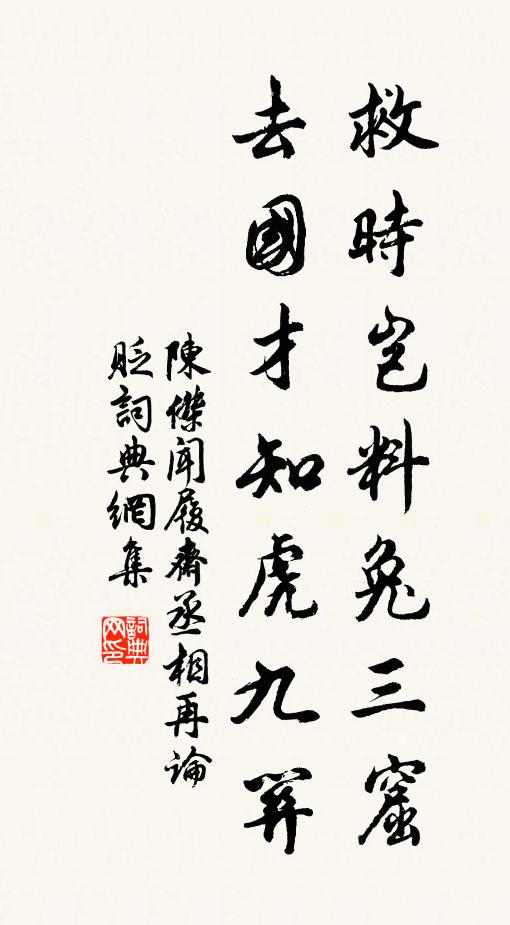 救時豈料兔三窟
去國才知虎九關
陳傑聞履齋丞相再論
貶詞典網集
詞典网印